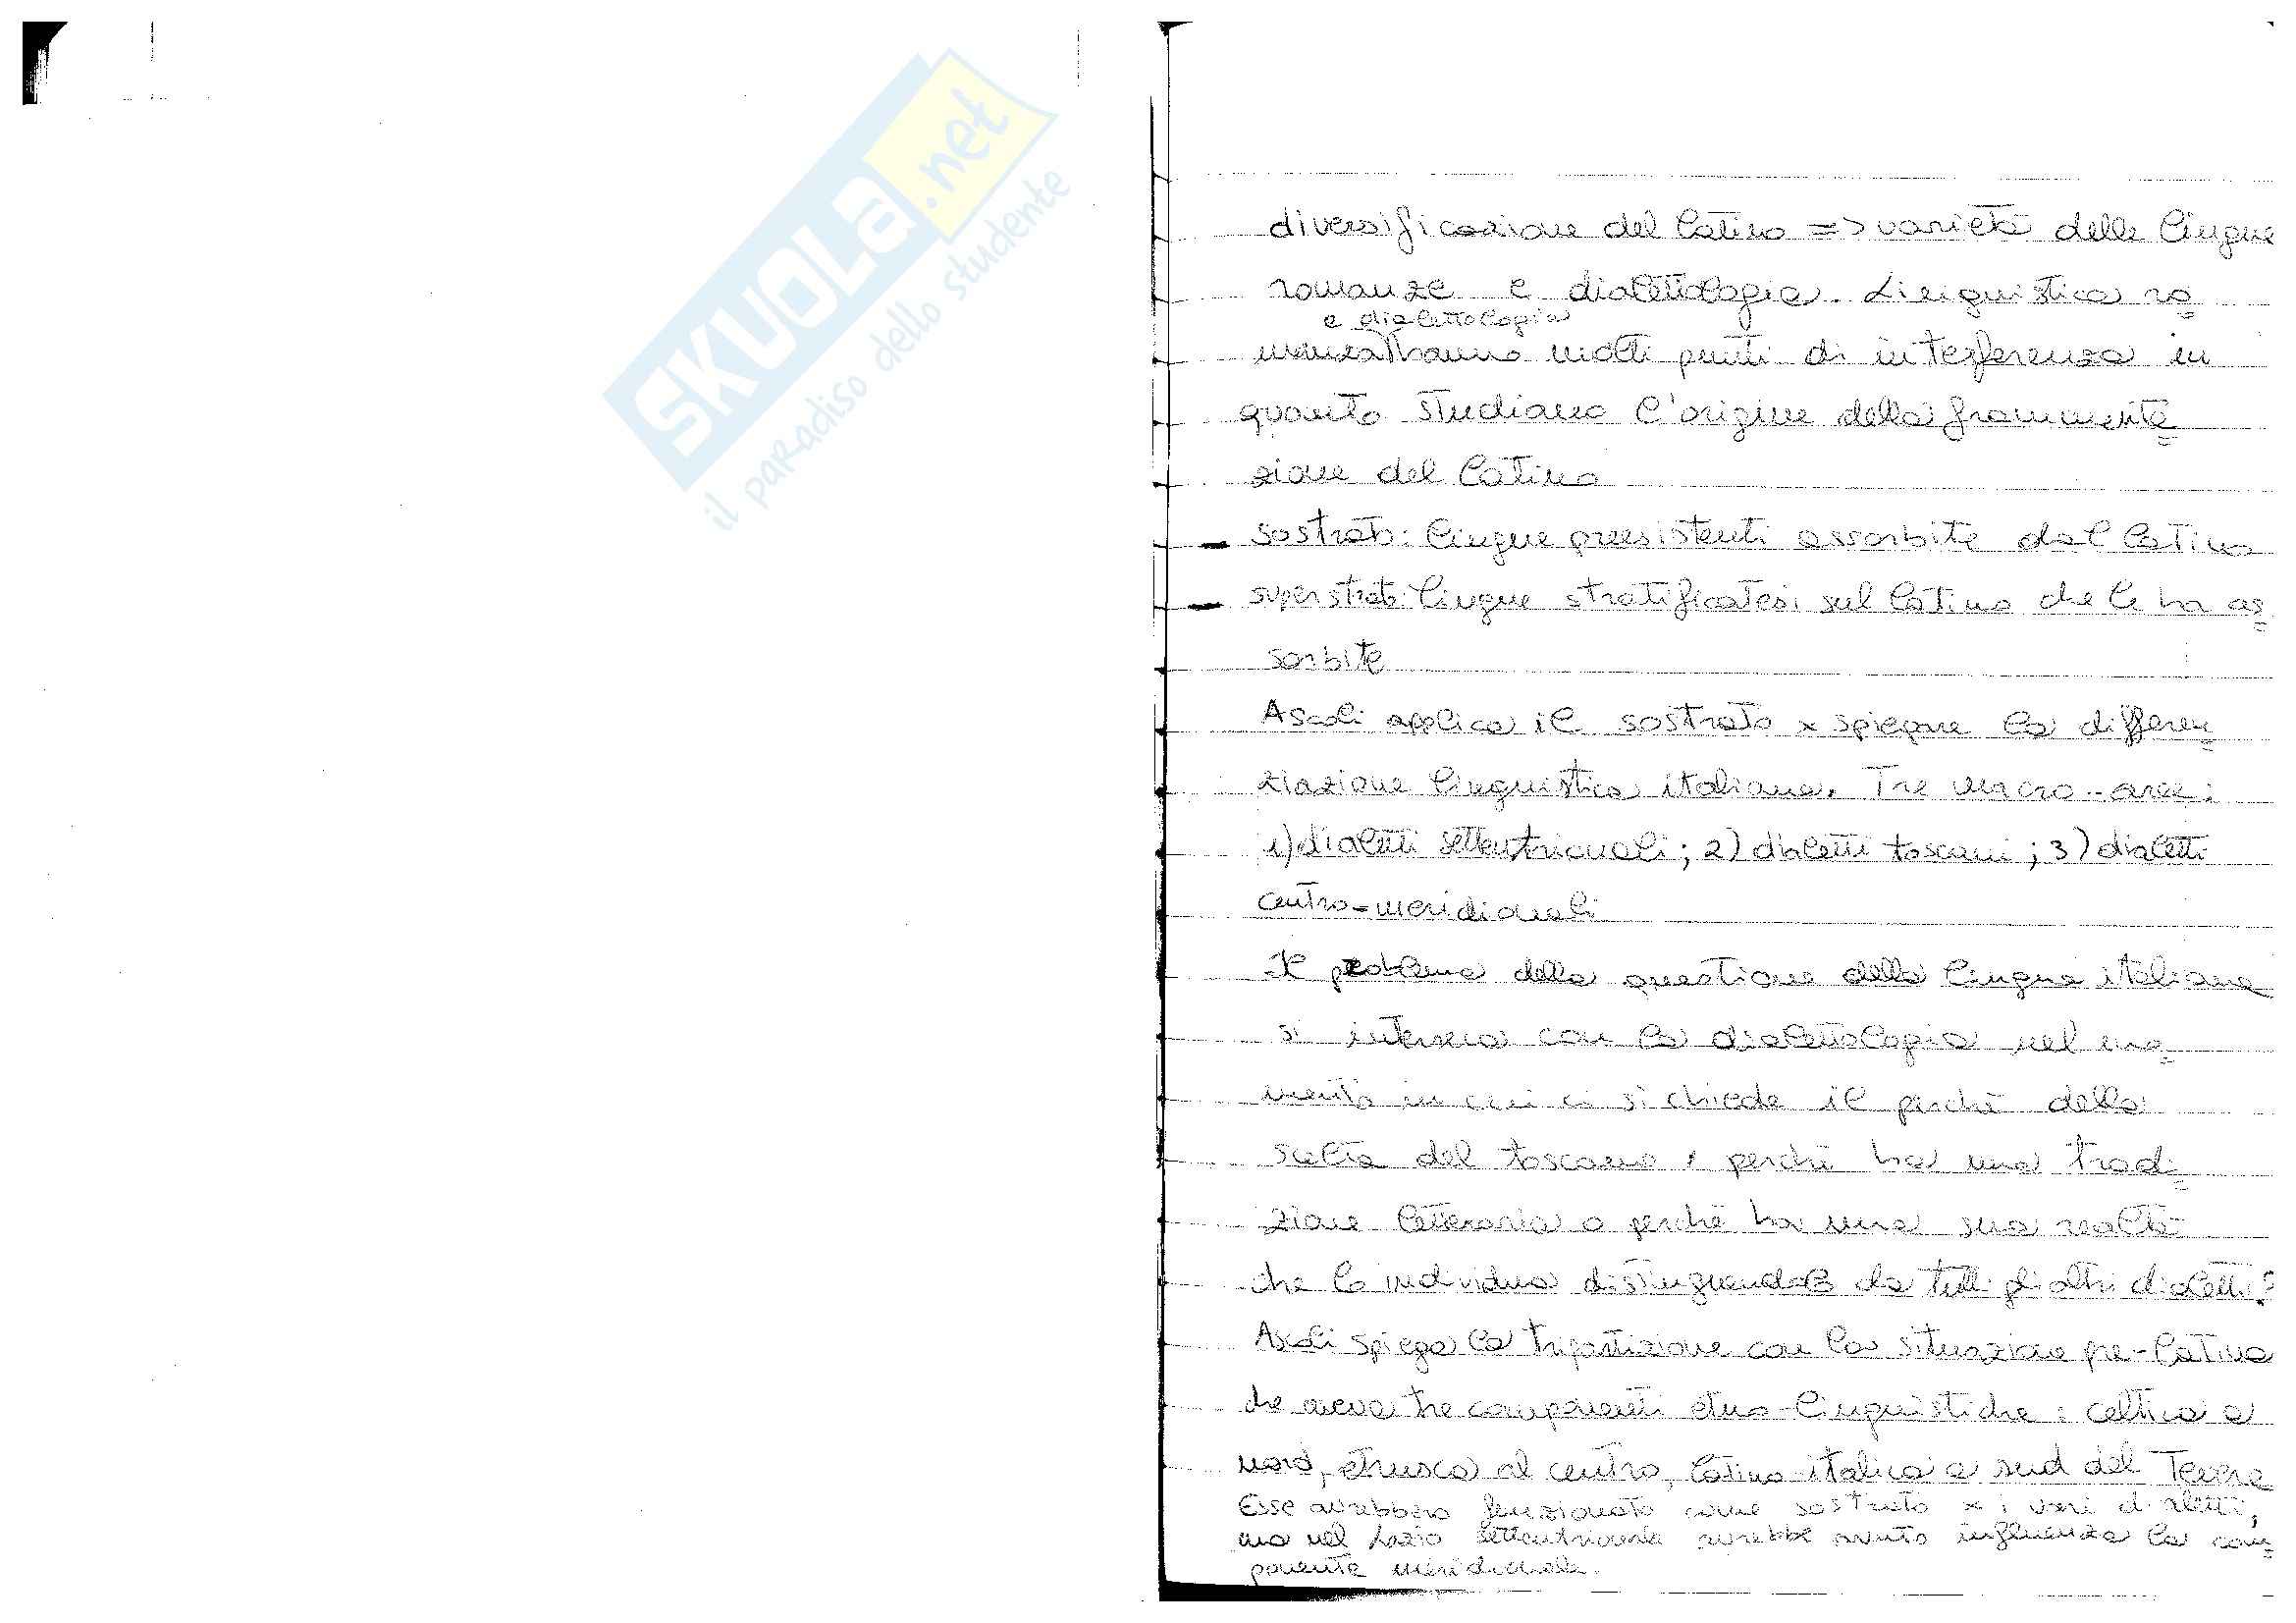 SKUOLA.net
il paradiso dello studente
diversificazione del latino => varietà delle lingue
romanze e dialettologia. Linguistica ro=
e dialettologia
manza hanno molti punti di interferenza in
quanto studiano l'origine della frammenta=
zione del latino
- sostrato: lingue preesistenti assorbite dal latino
- superstrato: lingue stratificatesi sul latino che le ha as=
sorbite
Ascoli applica il sostrato x spiegare la differen=
ziazione linguistica italiana. Tre macro-aree:
1) dialetti settentrionali; 2) dialetti toscani; 3) dialetti
centro-meridionali
Il problema della questione della lingua italiana
si interseca con la dialettologia nel mo=
mento in cui ci si chiede il perché della
scelta del toscano, perché ha una tradi=
zione letteraria o perché ha una sua realtà
che lo individua distinguendolo da tutti gli altri dialetti?
Ascoli spiega la tripartizione con la situazione pre-latina
che aveva tre componenti etno-linguistiche: celtica a
nord, etrusca al centro, latino-italica a sud del Tevere
Esse avrebbero funzionato come sostrato x i vari dialetti,
ma nel Lazio settentrionale avrebbe avuto influenza la com=
ponente meridionale.